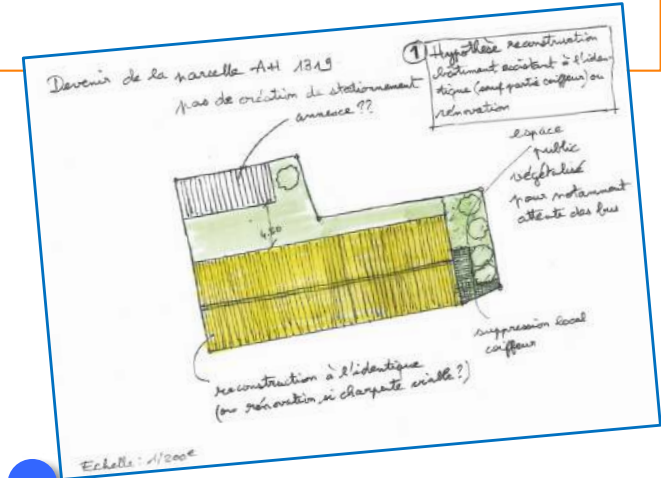 Devenir de la parcelle AH 1319
pas de création de stationnement
annexe ??
① Hypothèse reconstruction
bâtiment existant à l'iden-
tique (sauf partie coiffeur) ou
rénovation
espace
public
végétalisé
pour notamment
attente des bus
4.50
suppression local
coiffeur
reconstruction à l'identique
(ou rénovation, si charpente viable ?)
Echelle : 1/200e